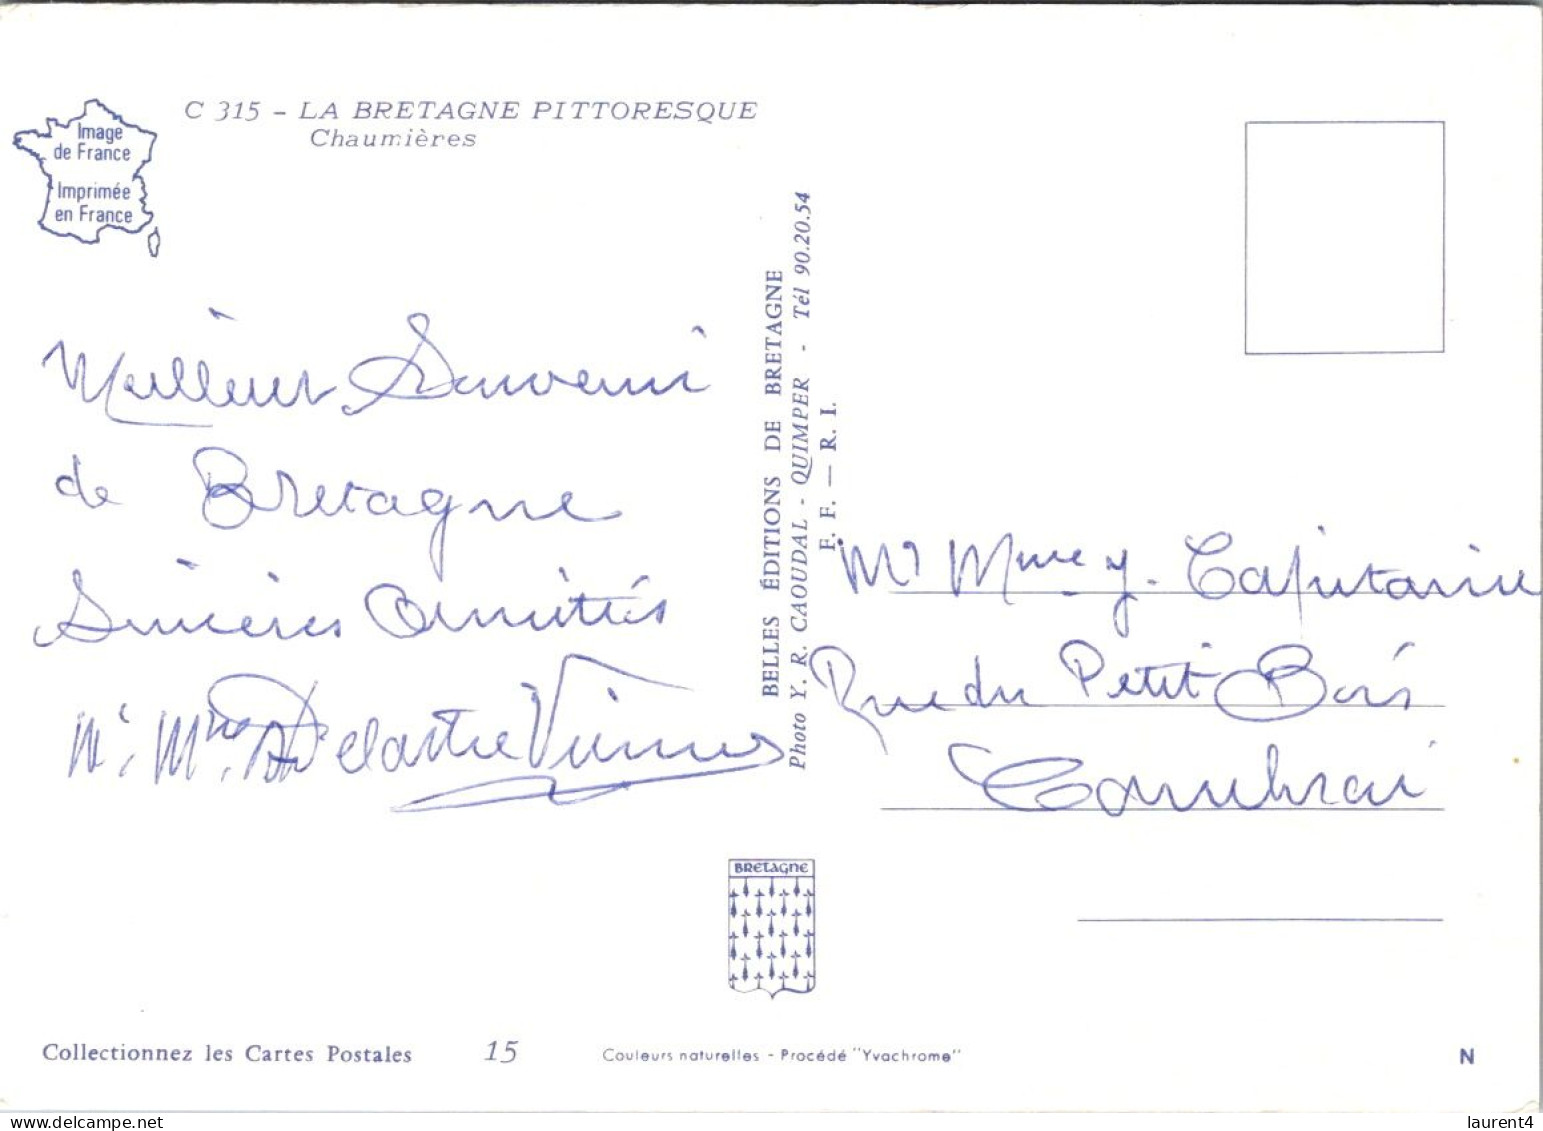 C 315 - LA BRETAGNE PITTORESQUE
Chaumières
Image
de France
Imprimée
en France
Meilleur Souvenir
de Bretagne
Sincères Amitiés
Mr. Mme Delattre
BELLES ÉDITIONS DE BRETAGNE
Photo Y. R. CAOUDAL - QUIMPER - Tél 90.20.54
F. F. — R. I.
Mr Mme Capitaine
Rue du Petit Bois
Cambrai
BRETAGNE
Collectionnez les Cartes Postales
15
Couleurs naturelles - Procédé "Yvachrome"
N
laurent4